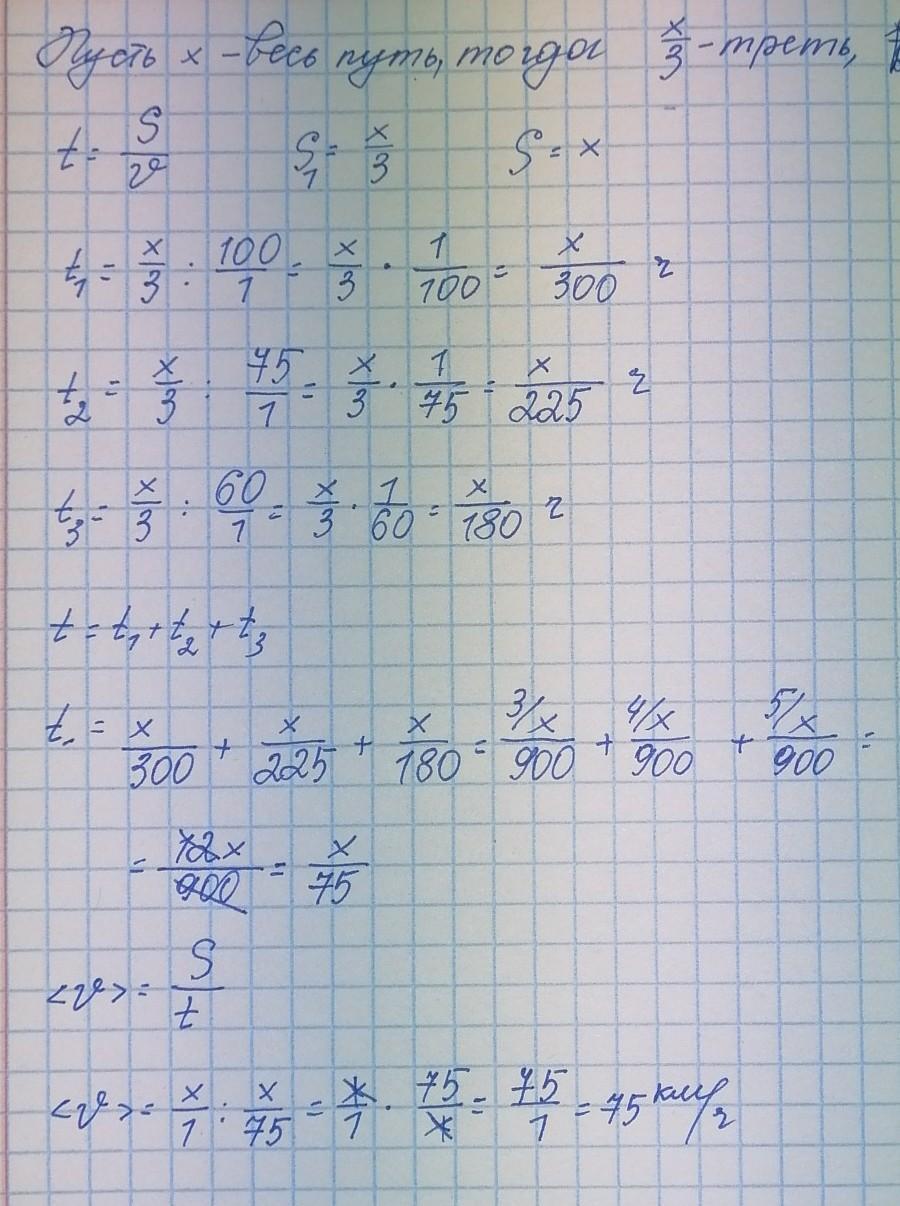 Пусть x - весь путь, тогда x/3 - треть,
t = S/v S₁ = x/3 S = x
t₁ = x/3 : 100/1 = x/3 · 1/100 = x/300 ч
t₂ = x/3 : 75/1 = x/3 · 1/75 = x/225 ч
t₃ = x/3 : 60/1 = x/3 · 1/60 = x/180 ч
t = t₁ + t₂ + t₃
t = x/300 + x/225 + x/180 = 3/x/900 + 4/x/900 + 5/x/900 =
= 12x/900 = x/75
<v> = S/t
<v> = x/1 : x/75 = x/1 · 75/x = 75/1 = 75 км/ч